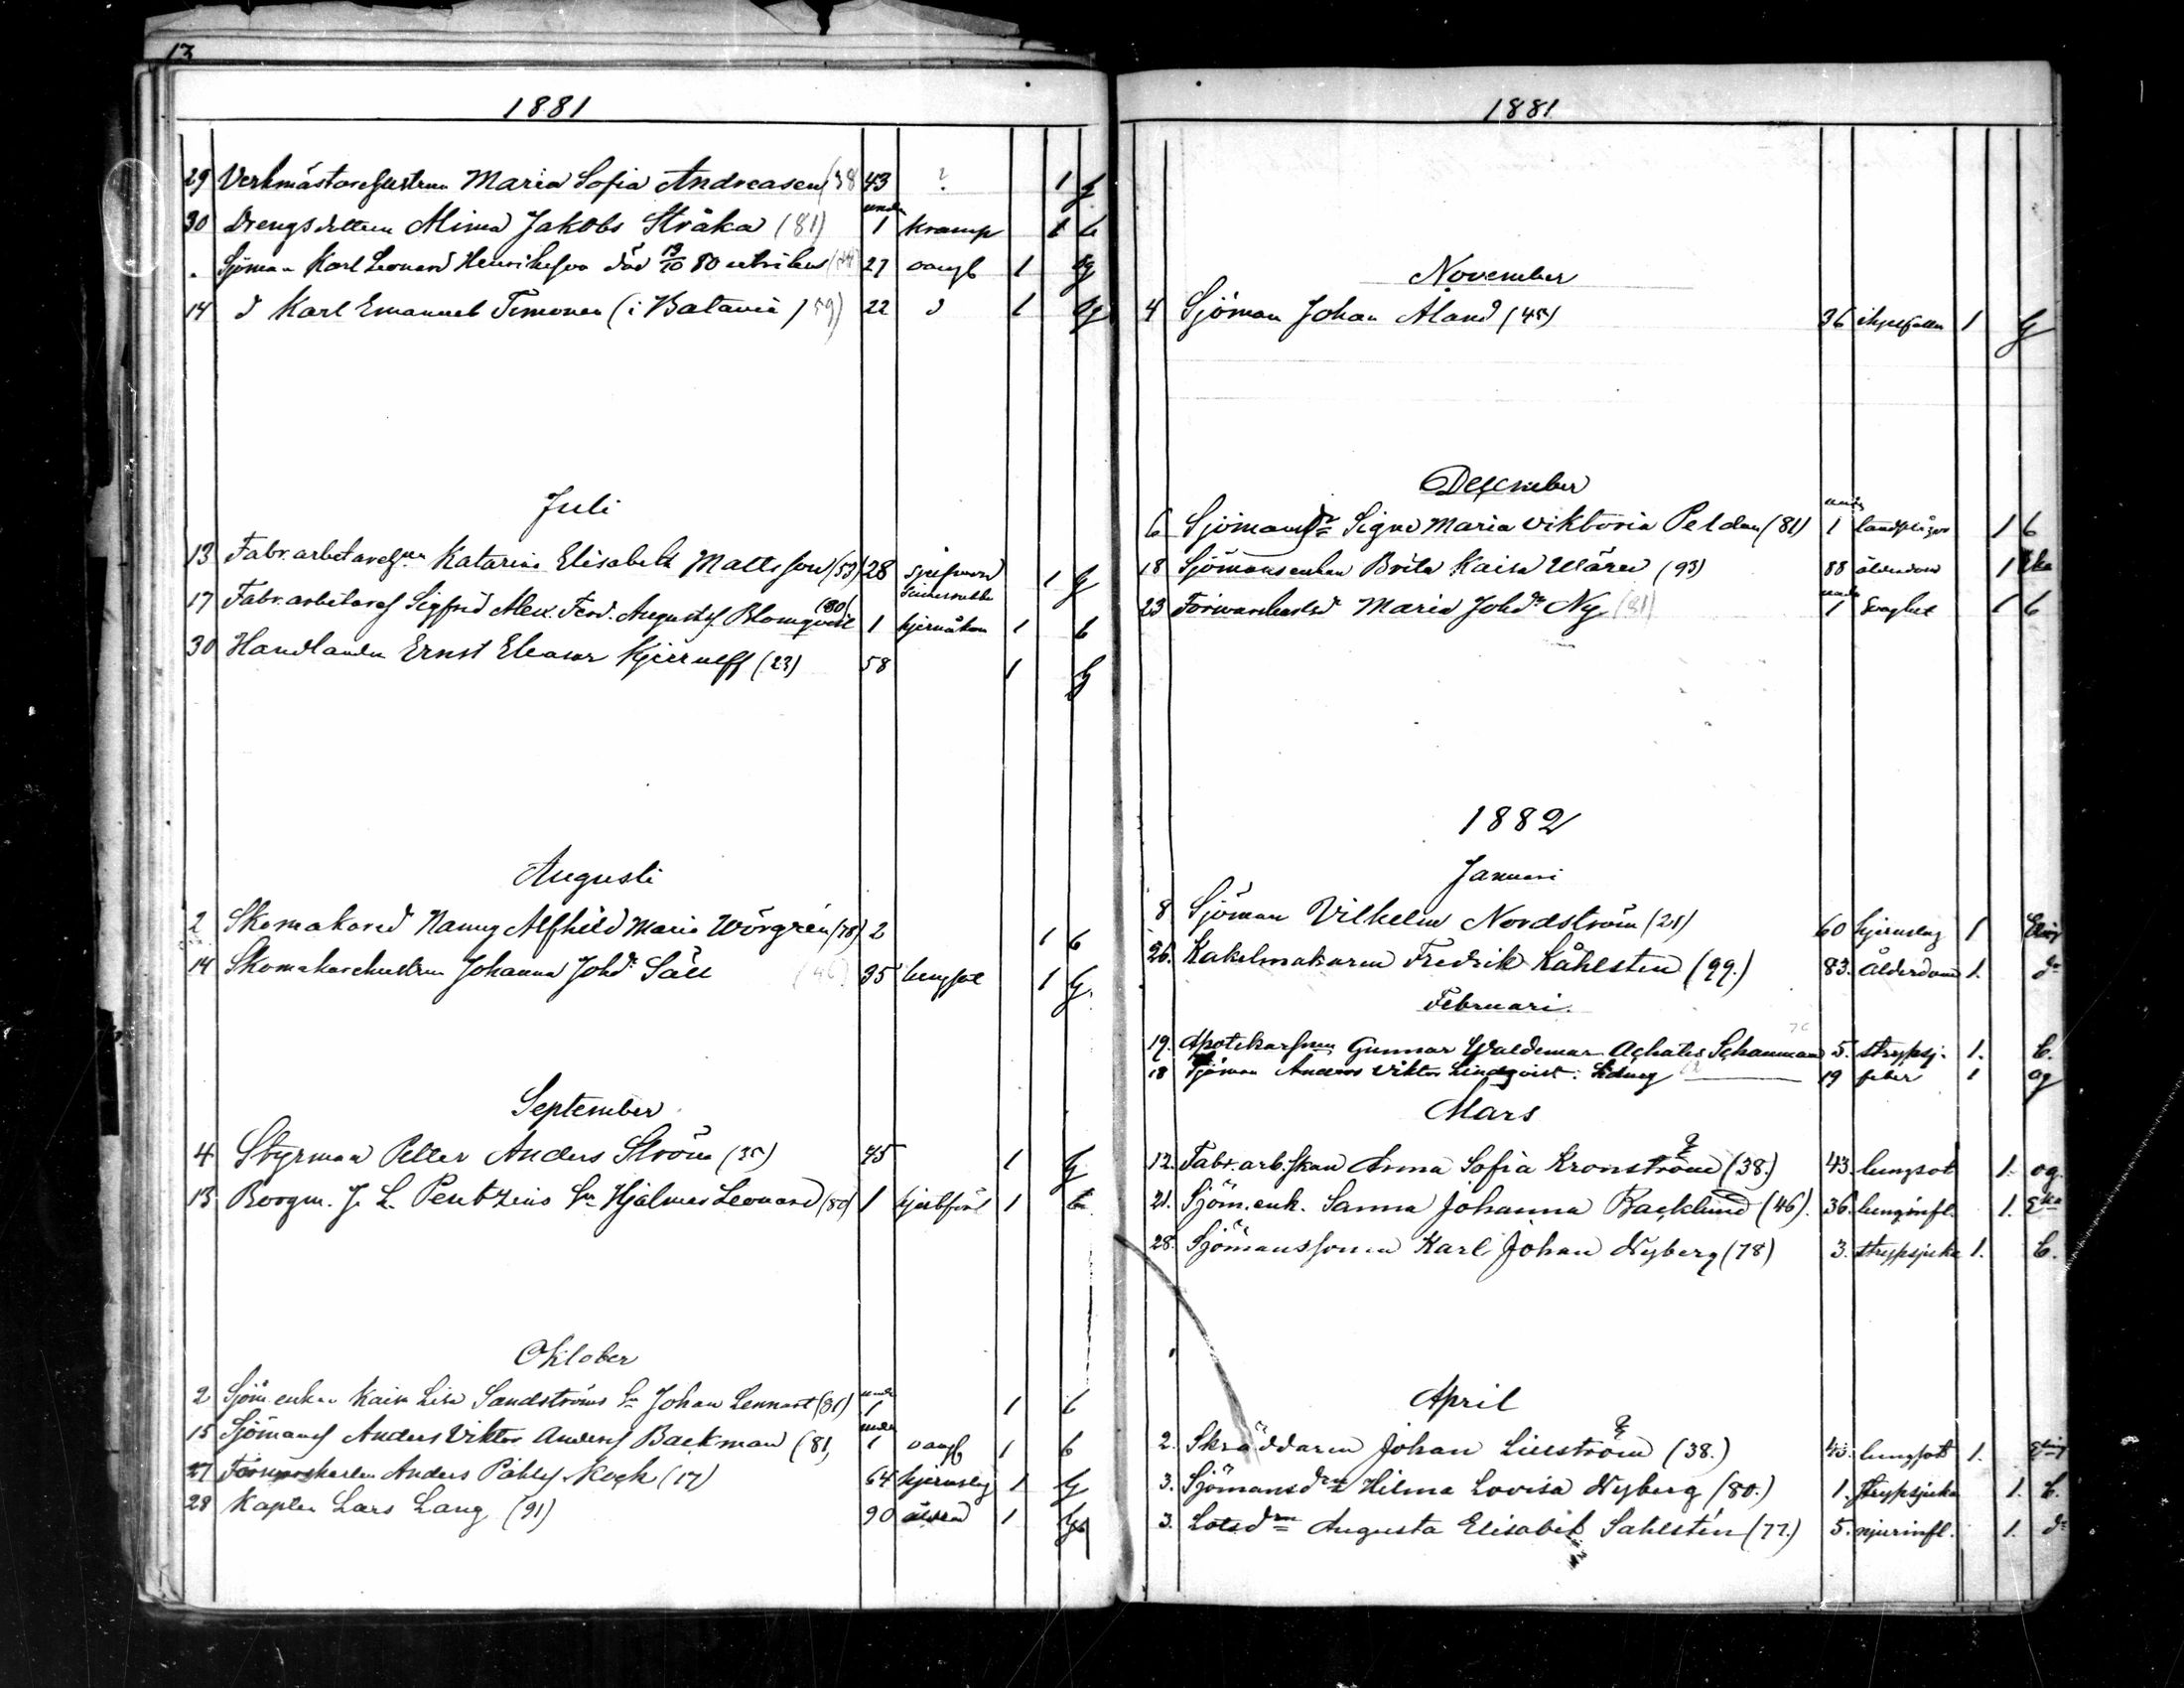 13
1881
29 Verkmästarehustrun Maria Sofia Andreasen (38 43 ? 1 g
under
30 Drengsdottern Mima Jakobs Stråka (81) 1 kramp 1 b
Sjöman Karl Leonard Henriksson död 19/10 80 utrikes 27 oangb 1 og
14 d Karl Emanuel Timonen (i Batavia) 59) 22 d 1 og
Juli
13 Fabr.arbetareh Katarina Elisabeth Mattsson (53) 28 1 g
17 Fabr.arbetares Sigfrid Alex. Ferd. Augusts. Blomqvist (80) 1 1 b
30 Handlanden Ernst Eleasar Kjerrulff (23) 58 1 g
Augusti
2 Skomakared Nanny Alfhild Maria Wörgrén (78) 2 1 b
14 Skomakarehustrun Johanna Johdr Säll 35 lungsot 1 g.
September
4 Styrman Petter Anders Ström (35) 45 1 g
13 Borgm. J. L. Pentzins Sn Hjalmar Leonard (80) 1 1 b
Oktober
under
2 Sjöm.enkan Kaisa Lisa Sandströms Sn Johan Lennart (81) 1 1 b
under
15 Sjömans Anders Viktor Anderss Backman (81) 1 oangb 1 b
27 Anders Påhls. Koch (17) 64 hjernslag 1 g
28 Kapten Lars Lang (91) 90 ålderd 1 g
1881
November
4 Sjöman Johan Åland (45) 36 ihjelfallen 1 g
December
under
6 Sjömansdr Signe Maria Viktoria Peldan (81) 1 1 b
18 Sjömansenkan Brita Kaisa Wären (93) 88 ålderdom 1 Eka
under
23 Maria Johdr Ny (81) 1 svaghet 1 b
1882
Januari
8 Sjöman Vilhelm Nordström (21) 60 hjernslag 1 Elig
26. Kakelmakaren Fredrik Kåhlsten (99.) 83. Ålderdom 1. do
Februari.
19. Apotekarsonen Gunnar Waldemar Achates Schauman 76 5. strypsj. 1. b.
18 Sjöman Anders Viktor Lindqvist 19 feber 1 og
Mars
12. Fabr.arb.skan Anna Sofia Kronström (38.) 43. lungsot 1. og.
21. Sjöm.enk. Sanna Johanna Backlund (46). 36. lunginfl. 1. Eka
28. Sjömanssonen Karl Johan Nyberg (78) 3. strypsjuka 1. b.
April
2. Skräddaren Johan Liuström (38.) 43. lungsot 1. Elig
3. Sjömansdrn Hilma Lovisa Nyberg (80.) 1. strypsjuka 1. b.
3. Lotsdrn Augusta Elisabet Sahlstén (77.) 5. njurinfl. 1. do